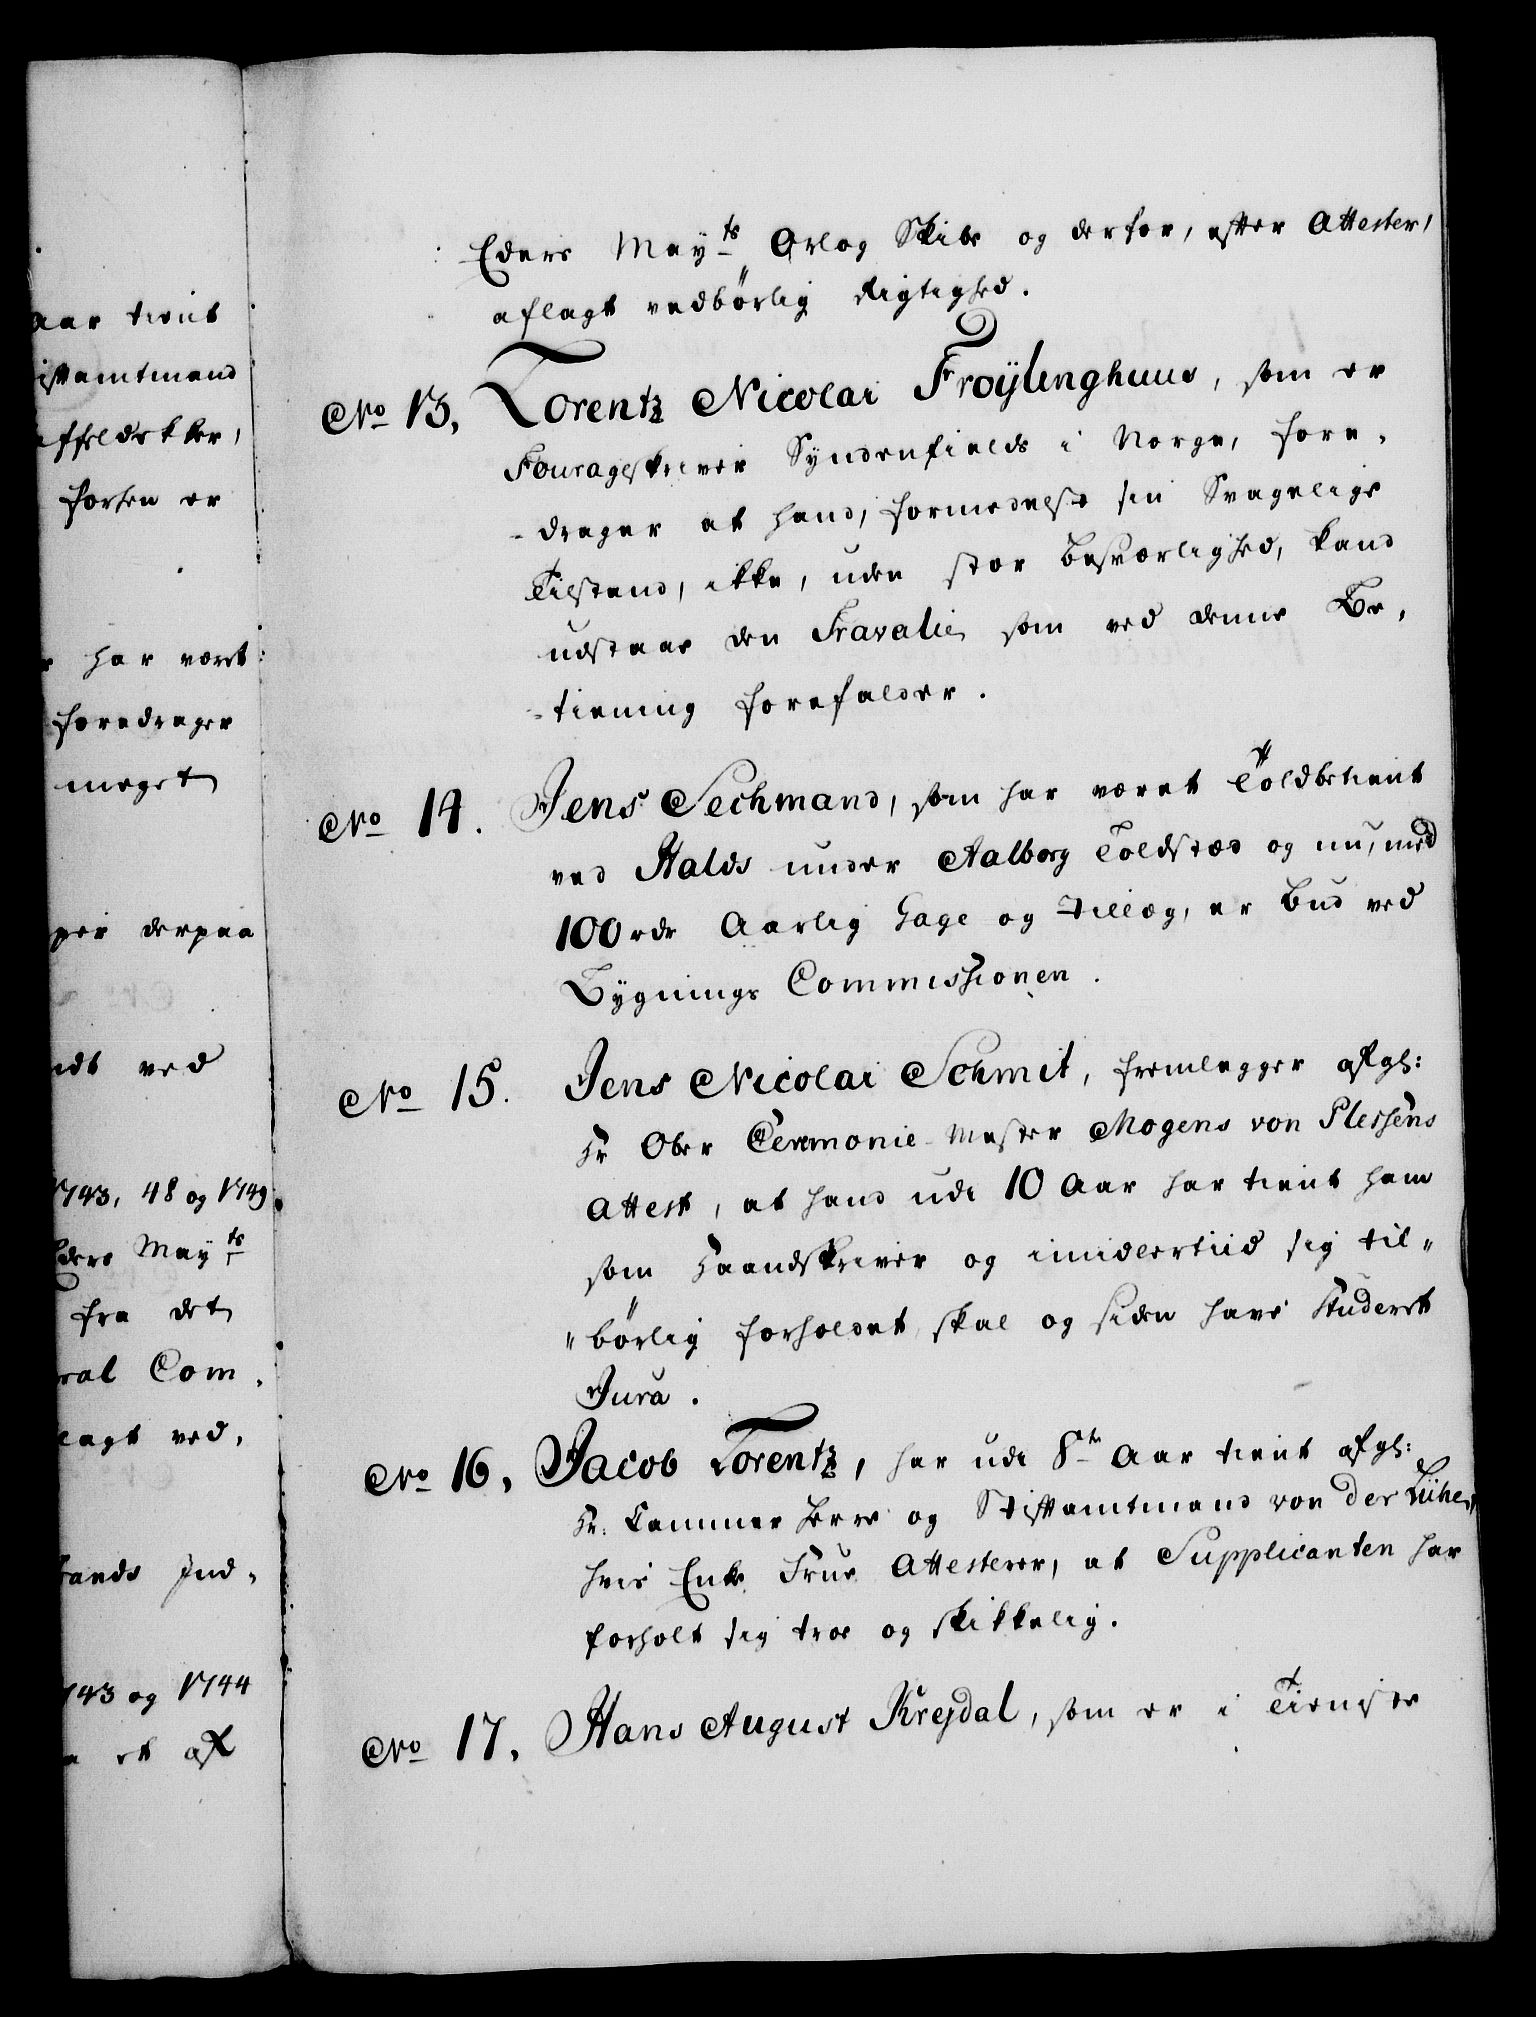 aar tient
istamtmand
affeldskker,
forhen er
har været
foredrager
meget
per derpaa
ndt ved
1743, 48 og 1749
Eders Mayts
fra det
ral Com,
lagt ved,
Lands Ind,
1743 og 1744
et af
Eders Mayts Orlog Skibe og derfor, efter Attester,
aflagt vedbörlig Rigtighed.
No 13, Lorentz Nicolai Froÿlinghuus, som er
Fourageskriver Syndenfields i Norge, fore,
-drager at hand, formedelst sin Svagelige
Tilstand, ikke, uden stor besværlighed, kand
udstaae den Travalie, som ved denne Be,
-tiening forefalder.
No 14. Jens Sechmand, som har været Toldbetient
ved Hals under Aalborg Toldsted og nu, med
100 rdr Aarlig Gage og Tillæg, er bud ved
Bygnings Commissionen.
No 15. Jens Nicolai Schmit, fremlegger afgl:
Hr Ober Ceremonie Mester Mogens von Plessens
Attest, at hand udi 10 Aar har tient ham
som Haandskriver og imidlertiid sig til"
"börlig forholdet, skal og siden have Studeret
Jura.
No 16, Jacob Lorentz, har udi 8te Aar tient afgl:
Hr. Cammer Herre og Stiftamtmand von der Lühe,
hvis Enke Frue Attesterer, at Supplicanten har
forholt sig troe og skikkelig.
No 17, Hans August Krejdal, som er i Tieniste